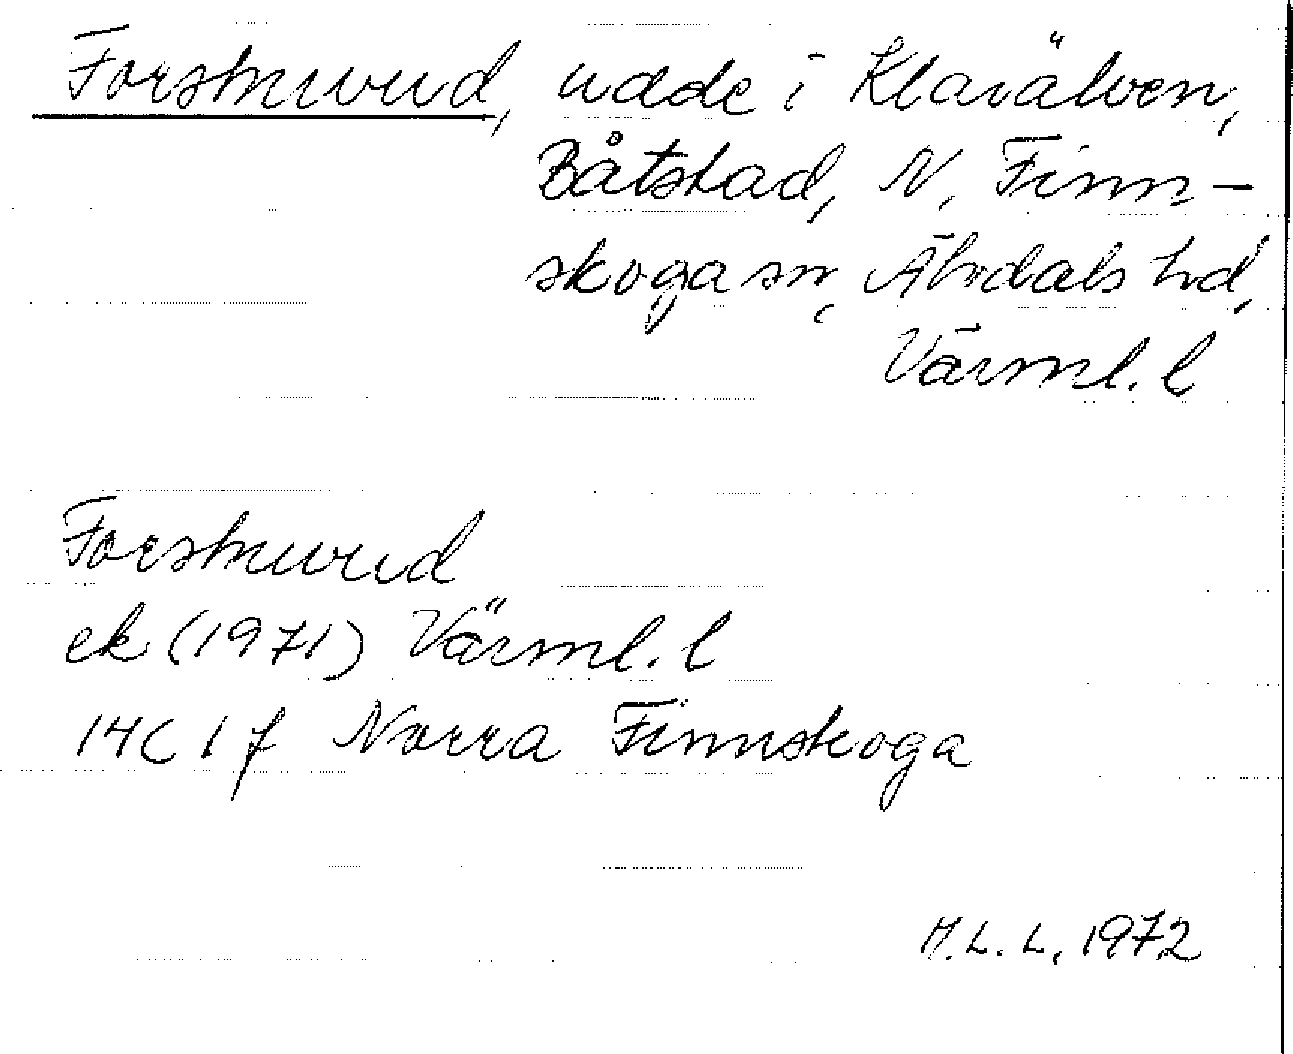 Forshuvud, udde i Klarälven,
Båtstad, N. Finn-
skoga sn, Älvdals hd,
Värml. l
Forshuvud
ek (1971) Värml. l
14C 1 f Norra Finnskoga
H.L.L. 1972